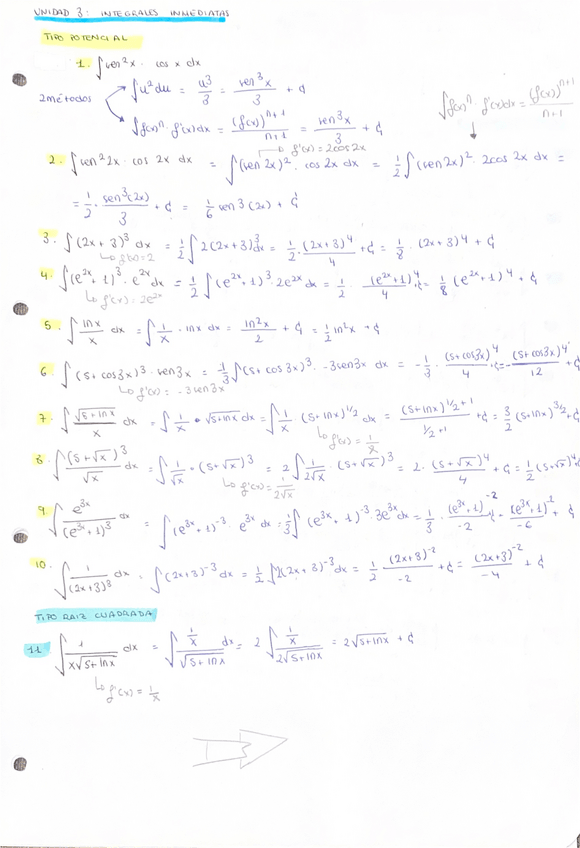 UNIDAD 3: INTEGRALES INMEDIATAS
TIPO POTENCIAL
1. ∫sen²x · cos x dx
2 métodos
∫u²du = u³/3 = sen³x/3 + C
∫f(x)ⁿ · f'(x)dx = (f(x))ⁿ⁺¹/n+1 = sen³x/3 + C
∫f(x)ⁿ · f'(x)dx = (f(x))ⁿ⁺¹/n+1
f'(x) = 2cos2x
2. ∫sen²2x · cos 2x dx = ∫(sen 2x)² · cos 2x dx = 1/2 ∫(sen 2x)² · 2cos 2x dx =
= 1/2 · sen³(2x)/3 + C = 1/6 sen³(2x) + C
3. ∫(2x+3)³ dx = 1/2 ∫2(2x+3)³dx = 1/2 · (2x+3)⁴/4 + C = 1/8 · (2x+3)⁴ + C
f'(x) = 2
4. ∫(e²ˣ+1)³ · e²ˣdx = 1/2 ∫(e²ˣ+1)³ · 2e²ˣdx = 1/2 · (e²ˣ+1)⁴/4 + C = 1/8 (e²ˣ+1)⁴ + C
f'(x) = 2e²ˣ
5. ∫lnx/x dx = ∫1/x · lnx dx = ln²x/2 + C = 1/2 ln²x + C
6. ∫(5+cos3x)³ · sen3x = -1/3 ∫(5+cos3x)³ · -3sen3x dx = -1/3 · (5+cos3x)⁴/4 + C = -(5+cos3x)⁴/12 + C
f'(x) = -3sen3x
7. ∫√5+lnx/x dx = ∫1/x · √5+lnx dx = ∫1/x · (5+lnx)^1/2 dx = (5+lnx)^1/2+1/1/2+1 + C = 3/2 (5+lnx)^3/2 + C
f'(x) = 1/x
8. ∫(5+√x)³/√x dx = ∫1/√x · (5+√x)³ = 2 ∫1/2√x · (5+√x)³ = 2 · (5+√x)⁴/4 + C = 1/2 (5+√x)⁴ +
f'(x) = 1/2√x
9. ∫e³ˣ/(e³ˣ+1)³ dx = ∫(e³ˣ+1)⁻³ · e³ˣdx = 1/3 ∫(e³ˣ+1)⁻³ · 3e³ˣdx = 1/3 · (e³ˣ+1)⁻²/-2 + C = (e³ˣ+1)⁻¹/-6 + C
10. ∫1/(2x+3)³ dx · ∫(2x+3)⁻³dx = 1/2 ∫2(2x+3)⁻³dx = 1/2 (2x+3)⁻²/-2 + C = (2x+3)⁻²/-4 + C
TIPO RAIZ CUADRADA
11 ∫1/x√5+lnx dx = ∫1/x/√5+lnx dx = 2 ∫1/x/2√5+lnx = 2√5+lnx + C
f'(x) = 1/x